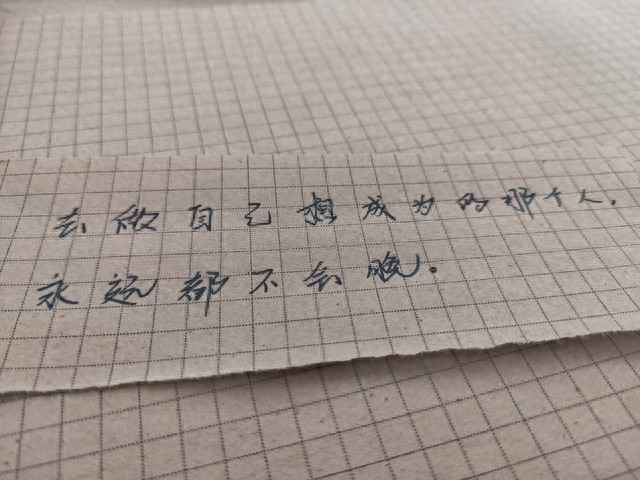 去做自己想成为的那个人.
永远都不会晚.